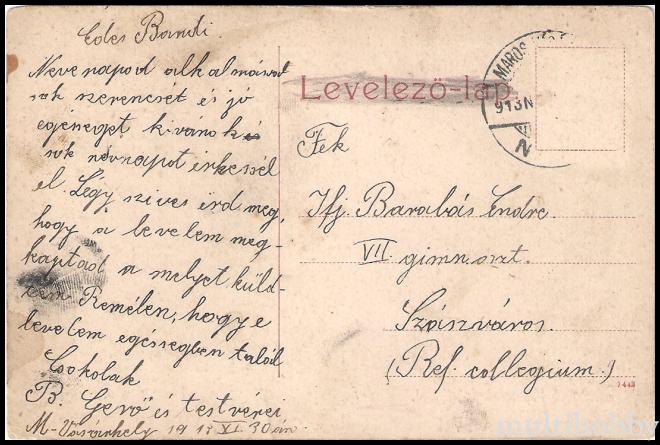 Édes Bandi.
Nevenapod alkalmásod
sok szerencsét és jó
egeneget kivánok és
sok névnapot érkessél
el. Légy szives érd meg,
hogy a levelem meg-
kaptad a melyet küld-
tem. Remélen, hogy e
levelem egéssegben talál
Csokolak
B. Gerő és testvérei
M-Vásárhely 191 XI. 30án.
Levelező-lap.
MAROS
913 N
Ifj. Barabás Endre
VII gimn. oszt.
Szászváros.
(Ref. collegium.)
7443
multihobby